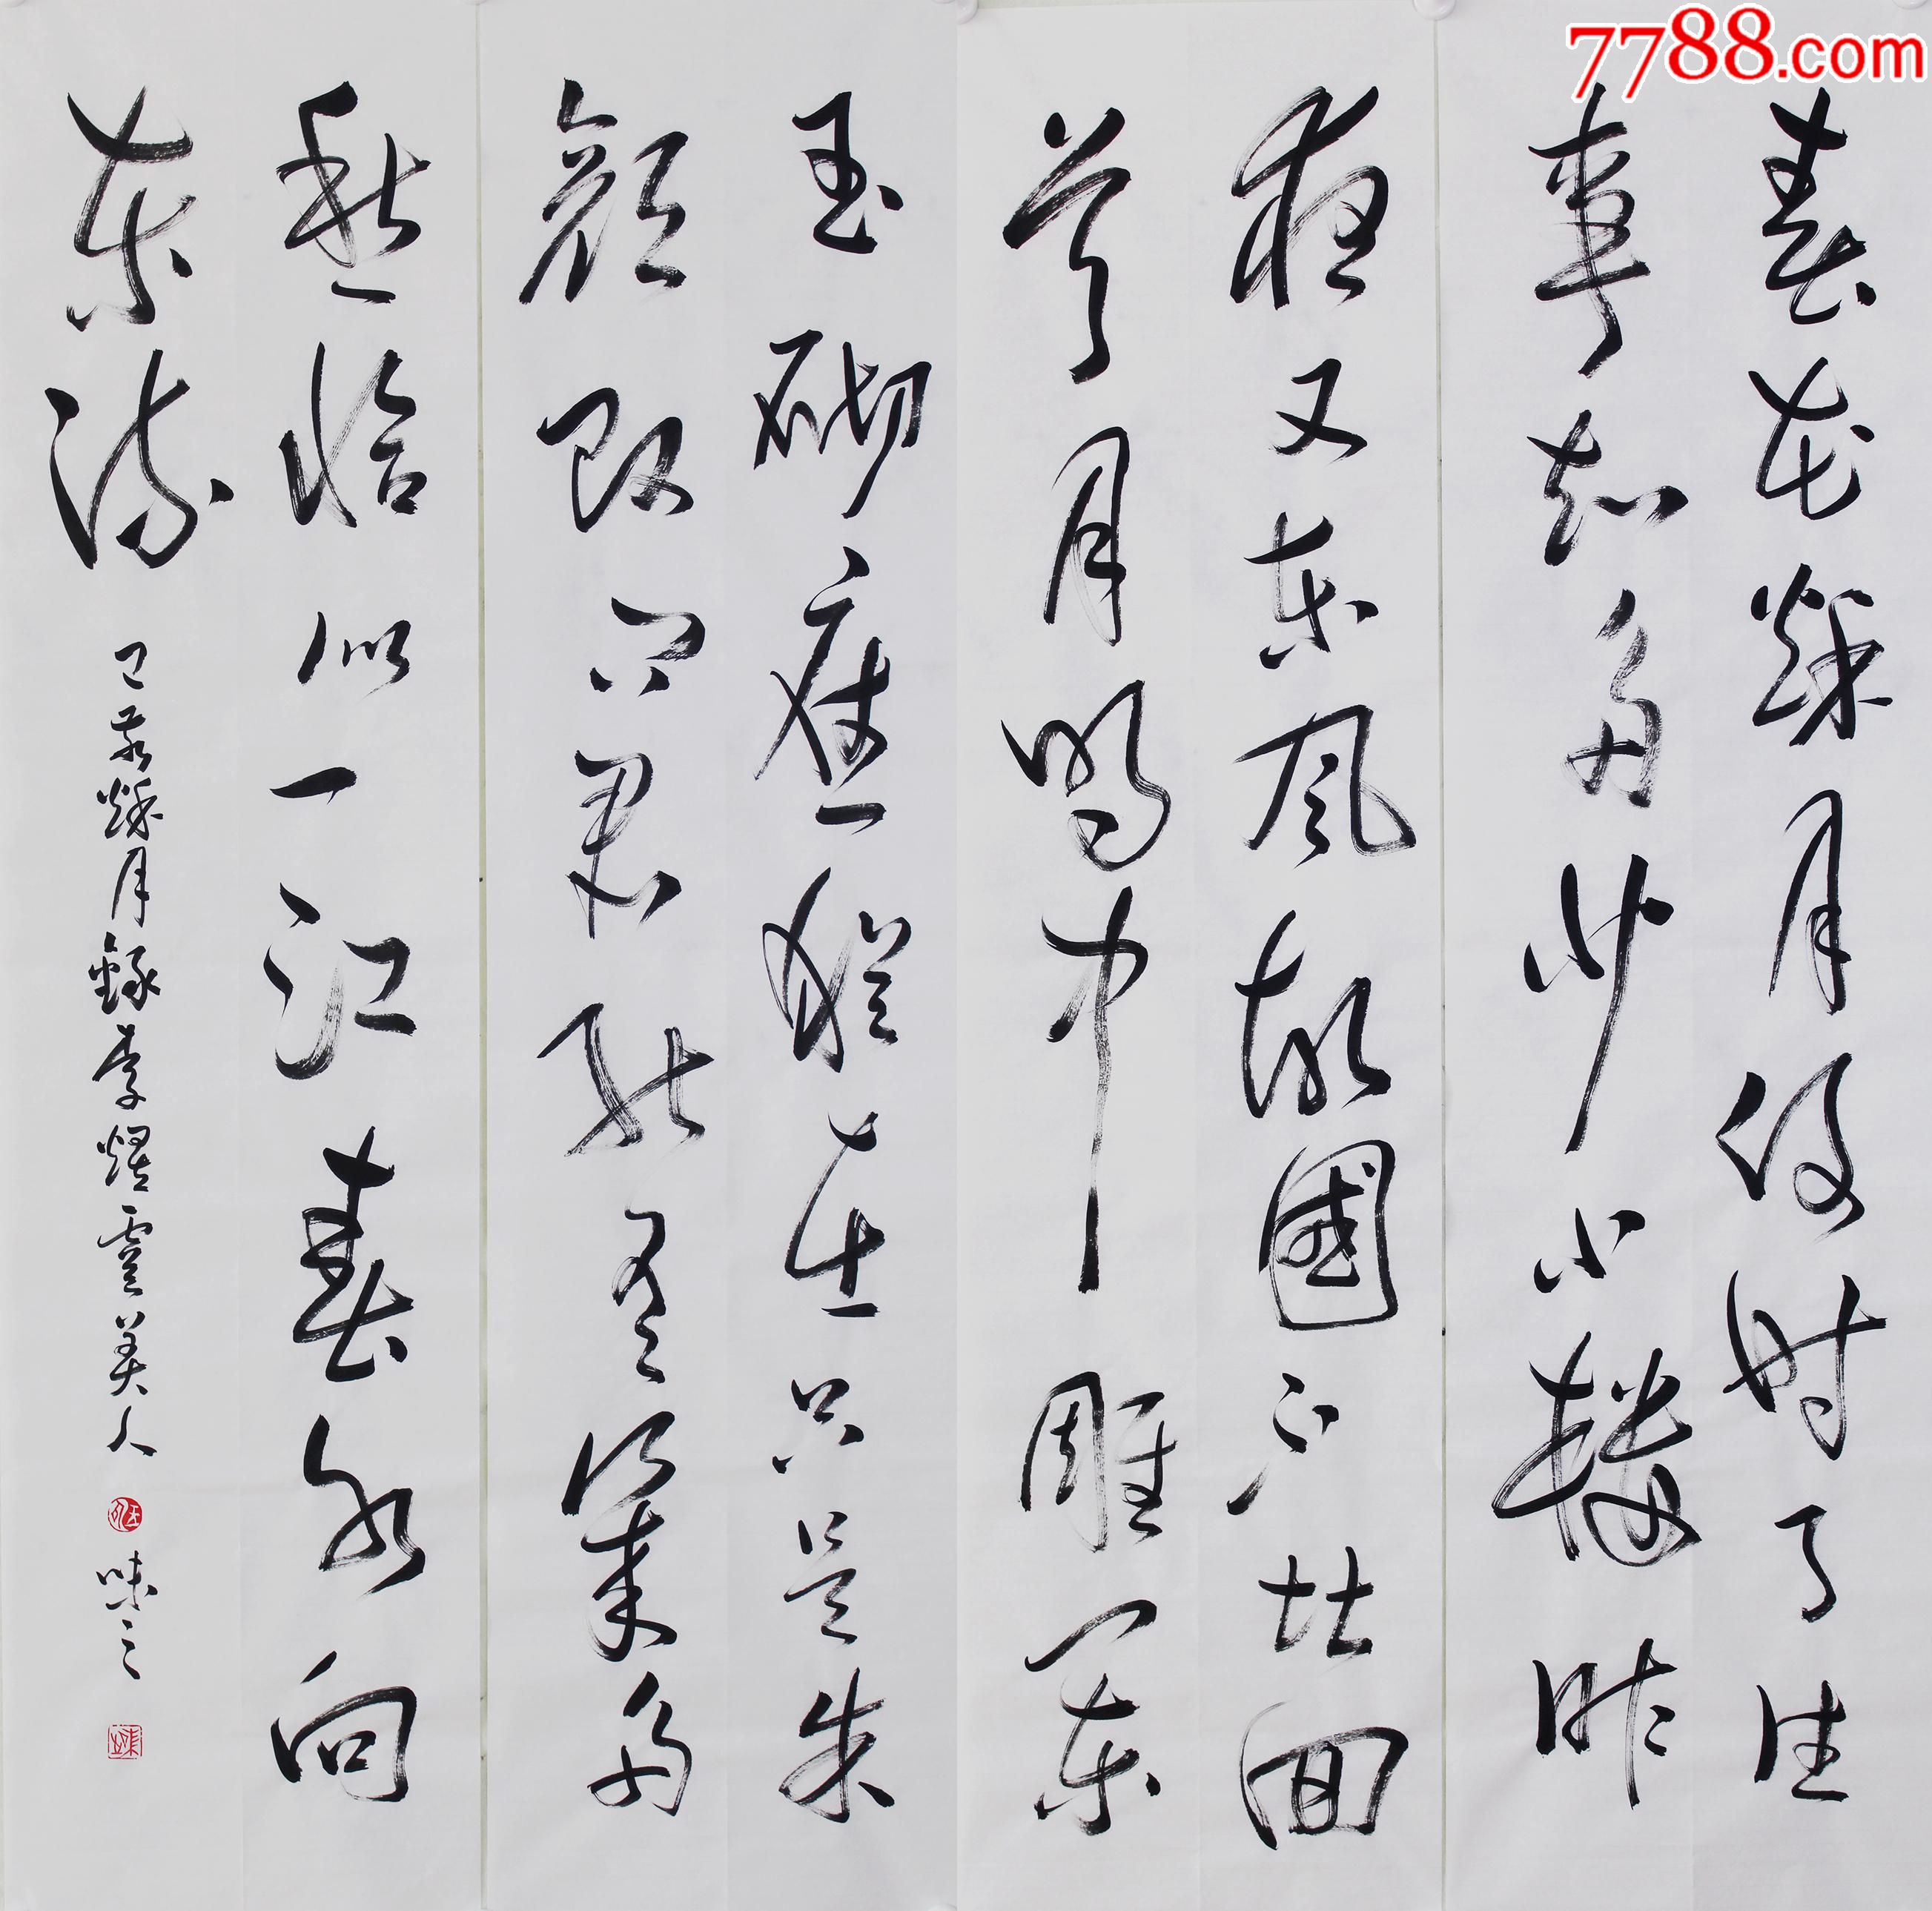 7788.com
春花秌月何时了往
事知多少小楼昨
夜又东风故國不堪回
首月明中雕阑
玉砌应猶在只是朱
顏改问君能有幾多
愁恰似一江春水向
东流
己亥秌月録李煜虞美人